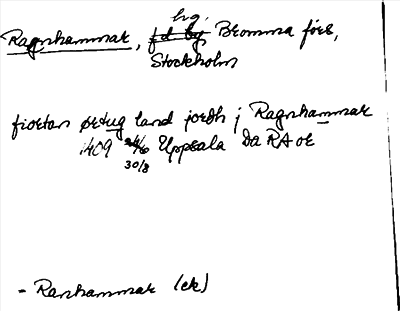 hg.
Ragnhammar, f d by Bromma förs,
Stockholm
fiortan ørtug land jordh j Ragnhammar
1409 30/8 Uppsala Da RA or
- Ranhammar (ek)